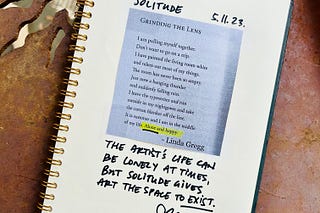 SOLITUDE
5.11.23.
GRINDING THE LENS
I am pulling myself together.
Don't want to go on a trip.
I have painted the living room white
and taken out most of my things.
The room has never been so empty.
Just now a banging thunder
and suddenly falling rain.
I leave the typewriter and run
outside in my nightgown and take
the cotton blanket off the line.
It is summer and I am in the middle
of my life. Alone and happy.
- Linda Gregg
THE ARTIST'S LIFE CAN
BE LONELY AT TIMES,
BUT SOLITUDE GIVES
ART THE SPACE TO EXIST.